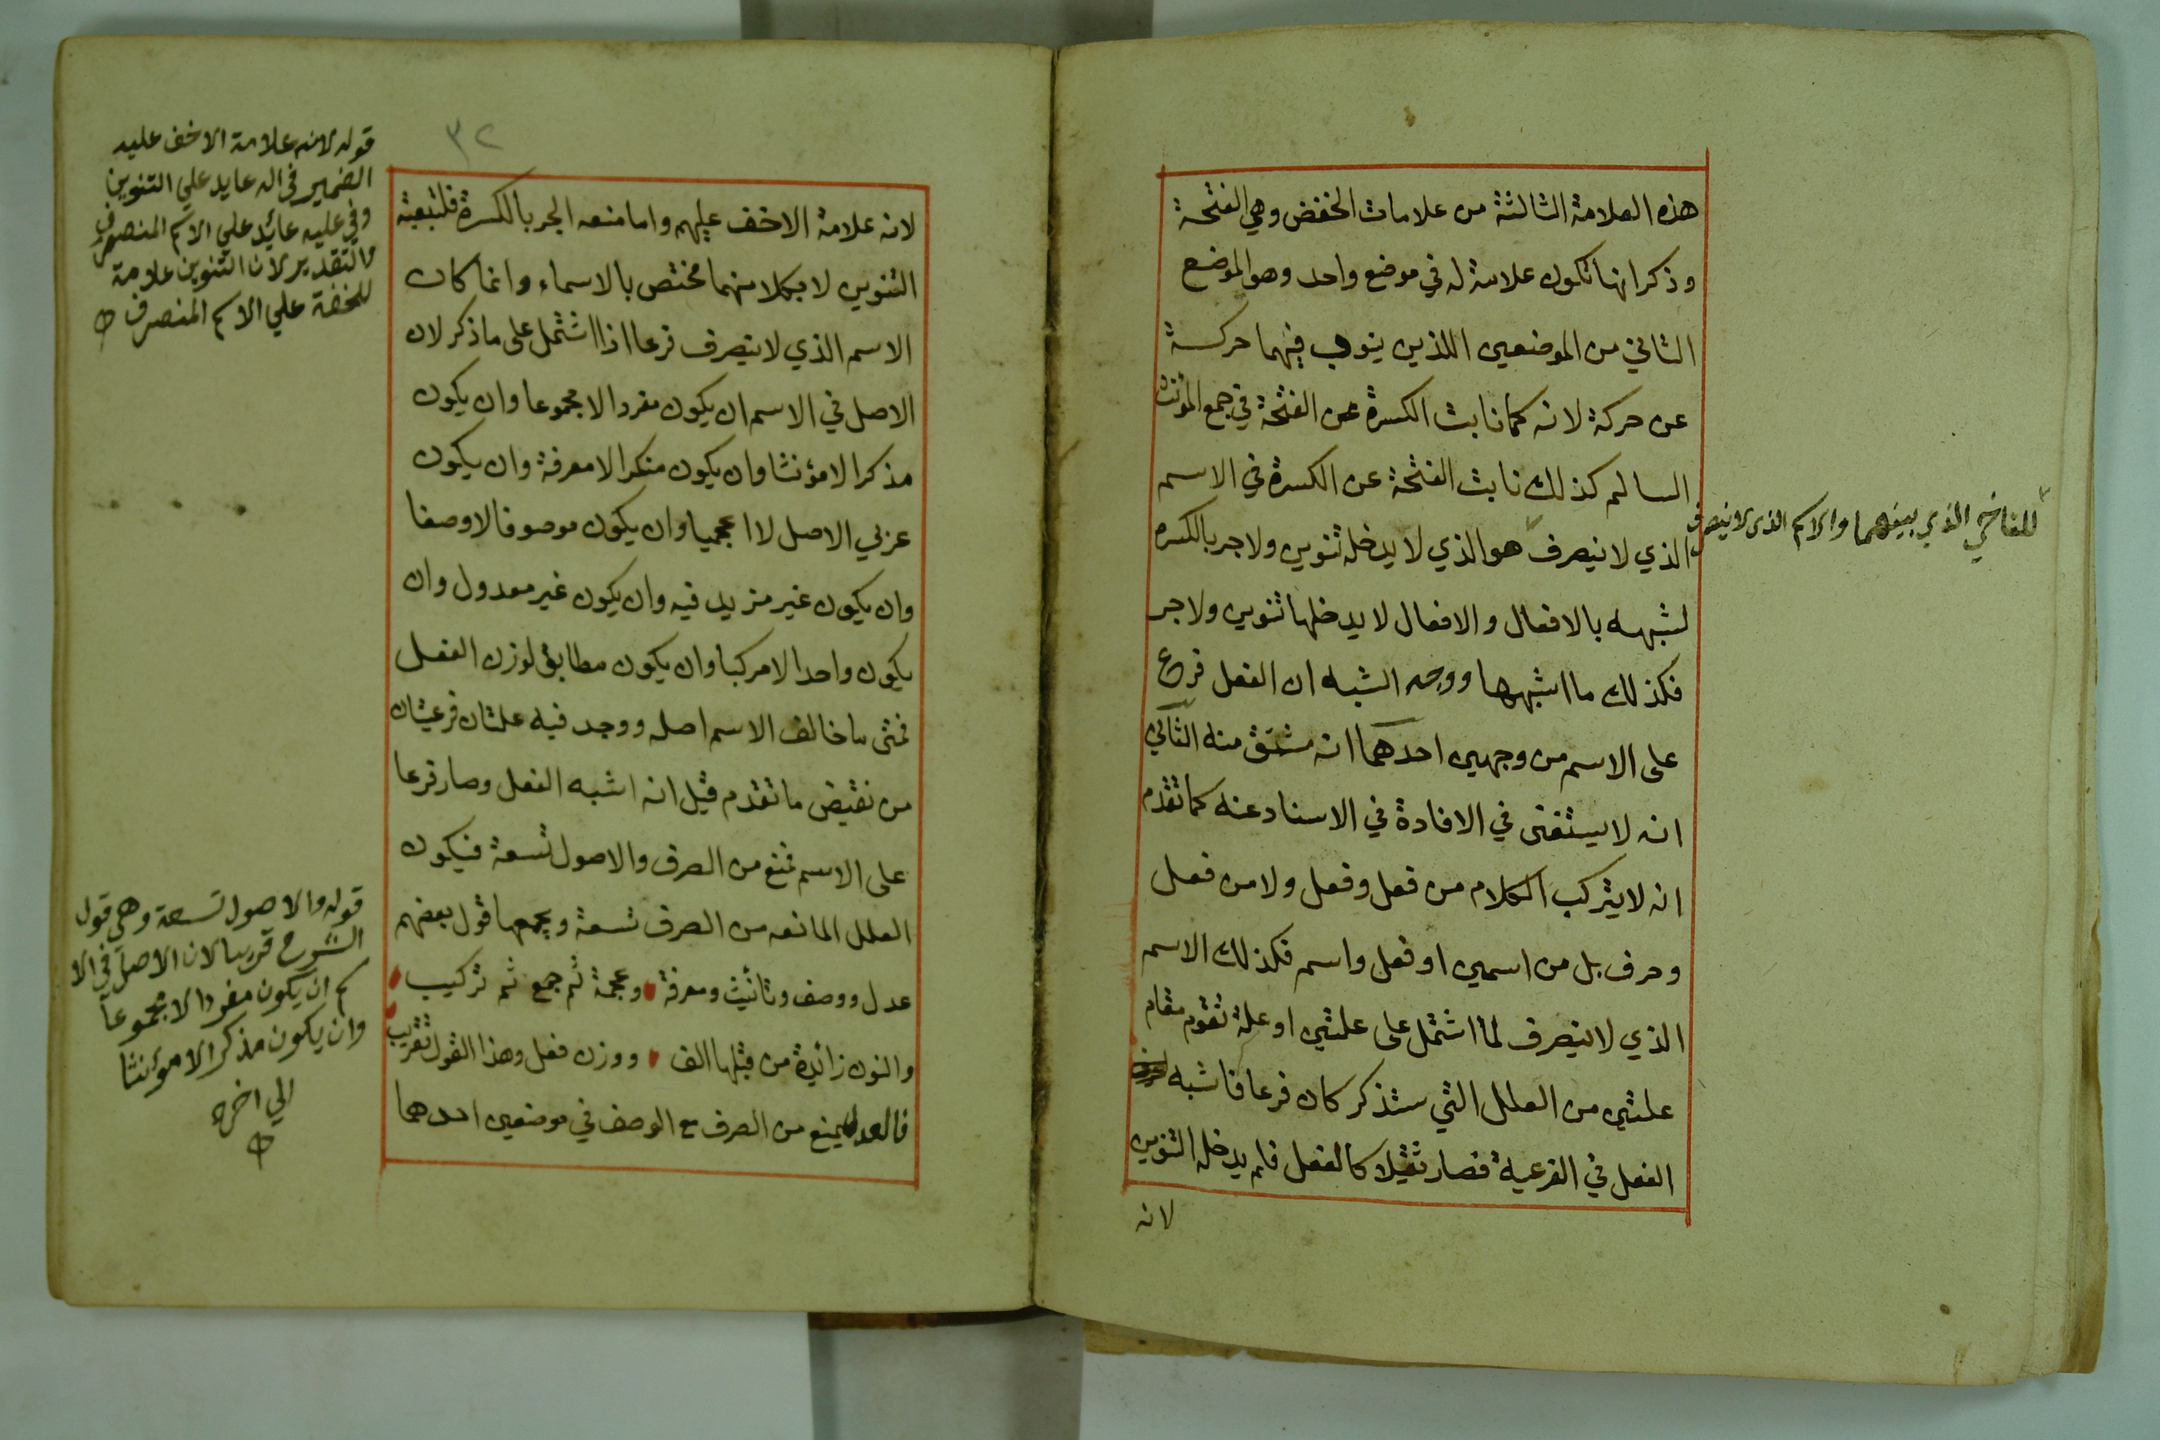 هذه العلامة الثالثة من علامات الخفض وهي الفتحة
وذكر انها تكون علامة له في موضع واحد وهو الموضع
الثاني من الموضعين اللذين ينوب فيهما حركة
عن حركة لانه كما نابت الكسرة عن الفتحة في جمع المؤنث
السالم كذلك نابت الفتحة عن الكسرة في الاسم
الذي لا ينصرف هو الذي لا يدخله تنوين ولا جر بالكسرة
لشبهه بالافعال والافعال لا يدخلها تنوين ولا جر
فكذلك ما اشبهها ووجه الشبه ان الفعل فرع
على الاسم من وجهين احدهما انه مشتق منه الثاني
انه لا يستغنى في الافادة في الاسناد عنه كما تقدم
انه لا يتركب الكلام من فعل وفعل ولا من فعل
وحرف بل من اسمين او فعل واسم فكذلك الاسم
الذي لا ينصرف لما اشتمل على علتين او علة تقوم مقام
علتين من العلل التي ستذكر كان فرعا فاشبه
الفعل في الفرعية فصار ثقيلا كالفعل فلم يدخله التنوين
لانه
للتاخي الذي بينهما والاسم الذي لا ينصرف
٣٢
لانه علامة الاخف عليهم واما منعه الجر بالكسرة فلتبعية
التنوين لان كلا منهما مختص بالاسماء وانما كان
الاسم الذي لا ينصرف فرعا اذا اشتمل على ما ذكر لان
الاصل في الاسم ان يكون مفردا لا مجموعا وان يكون
مذكرا لا مؤنثا وان يكون منكرا لا معرفة وان يكون
عربي الاصل لا اعجميا وان يكون موصوفا لا وصفا
وان يكون غير مزيد فيه وان يكون غير معدول وان
يكون واحدا لا مركبا وان يكون مطابق لوزن الفعل
فمتى ما خالف الاسم اصله ووجد فيه علتان فرعيتان
من نقيض ما تقدم قيل انه اشبه الفعل وصار فرعا
على الاسم فمنع من الصرف والاصول تسعة فيكون
العلل المانعه من الصرف تسعة ويجمعها قول بعضهم
عدل ووصف وتانيث ومعرفة وعجمة ثم جمع ثم تركيب
والنون زائدة من قبلها الف ووزن فعل وهذا القول تقريب
فالعدل يمنع من الصرف مع الوصف في موضعين احدهما
قوله لانه علامة الاخف عليه
الضمير في انه عايد علي التنوين
وفي عليه عائد علي الاسم المنصرف
فالتقدير لان التنوين علامة
للخفة علي الاسم المنصرف
قوله والاصول تسعة وهي قول
الشرح قريبا لان الاصل في الا
سم ان يكون مفردا لا مجموعا
وان يكون مذكرا لا مؤنثا
الي اخره